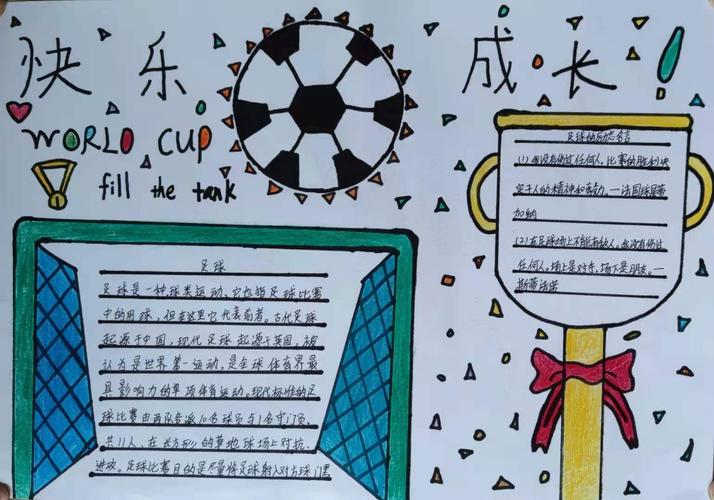 快乐
成长!
WORLD CUP
fill the tank
足球
足球是一种球类运动、它也指足球比赛
中的用球，但在这里它代表前者。古代足球
起源于中国，现代足球起源于英国，被
认为是世界第一运动，是全球体育界最
具影响力的单项体育运动。现代标准的足
球比赛由两队各派10名球员与1名守门员，
共11人，在长方形的草地球场上对抗、
进攻。足球比赛目的是尽量将足球射入对方球门里
足球的励志名言
(1)我没有伤过任何人，比赛的胜利决
定于人的精神和努力。一法国球星
加纳
(2)在足球场上不能有敌人，我没有伤过
任何人，场上是对手，场下是朋友。一
斯蒂法诺